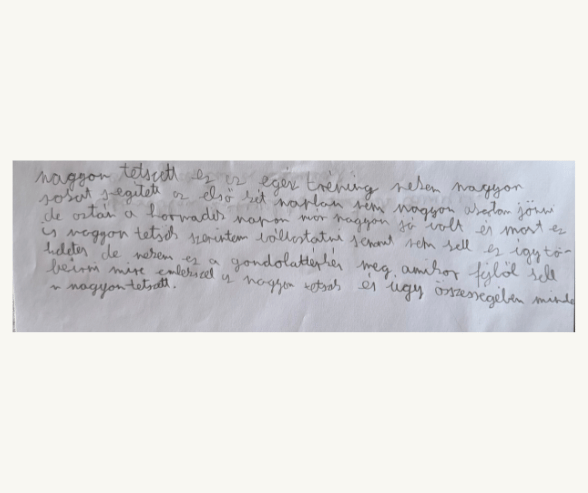 nagyon tetsett ez ez egéz tréning nekem nagyon
sokat segitett az első két napban sem nagyon akartam jönni
de aztán a harmadik napon már nagyon jó volt és most ez
is nagyon tetsek szerintem változtatni semmit sem kell ez így tö-
kéletes de nekem ez a gondolattérkép meg amikor fejből kell
beirni mire emlekszel is nagyon tetsek és úgy összességében minde
n nagyon tetsett.